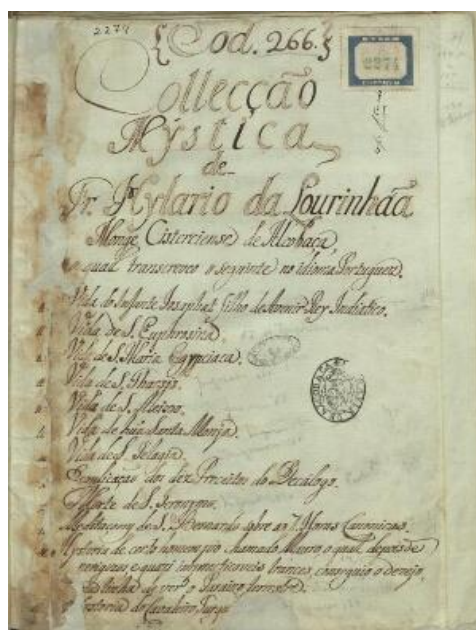 2274
{Cod. 266.}
2274
Collecção
Mýstica
de
Fr. Hylario da Lourinhãa
Monge Cisterciense de Alcobaça,
o qual transcreveo o seguinte no idioma Portuguez.
Vida do Infante Josaphat filho de Avenir Rey Indiatico.
Vida de S. Euphrosina.
Vida de S. Maria Egypciaca.
Vida de S. Tharsis.
Vida de S.
Vida de húa Santa Monja.
Vida de S. Pelagia.
Explicação dos dez Preceitos do Decálogo.
Morte de S. Jeronymo.
de S. Bernardo sobre as 7. Horas Canonicas.
Hystoria de certo homem, chamado o qual, depois de
perigosos e quasi trances, conseguio o dezejo,
que tinha de ver o Paraiso terrestre.
Historia do Cavaleiro